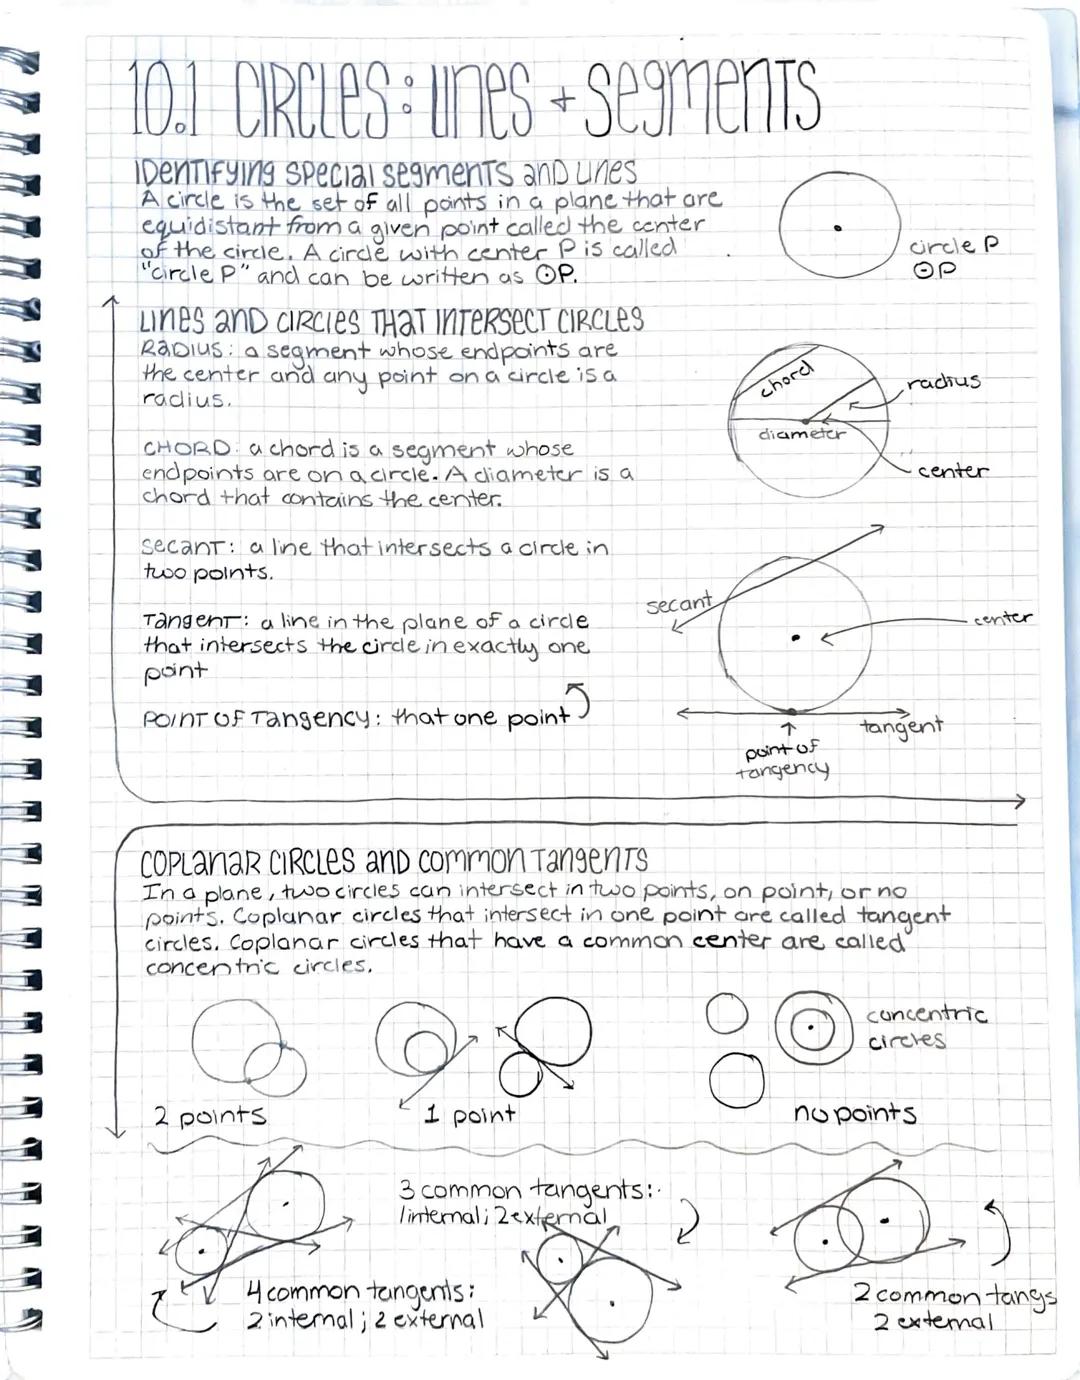 10.1 CIRCLES: LINES + SEGMENTS
IDENTIFYING SPECIAL SEGMENTS AND LINES
A circle is the set of all points in a plane that are
equidistant from a given point called the center
of the circle. A circle with center P is called
"circle P" and can be written as ⊙P.
circle P
⊙P
LINES AND CIRCLES THAT INTERSECT CIRCLES
RADIUS: a segment whose endpoints are
the center and any point on a circle is a
radius.
chord
radius
diameter
center
CHORD: a chord is a segment whose
endpoints are on a circle. A diameter is a
chord that contains the center.
SECANT: a line that intersects a circle in
two points.
secant
center
TANGENT: a line in the plane of a circle
that intersects the circle in exactly one
point
POINT OF TANGENCY: that one point
tangent
point of
tangency
COPLANAR CIRCLES AND COMMON TANGENTS
In a plane, two circles can intersect in two points, on point, or no
points. Coplanar circles that intersect in one point are called tangent
circles. Coplanar circles that have a common center are called
concentric circles.
concentric
circles
2 points
1 point
no points
3 common tangents:
1internal; 2external
4 common tangents:
2 internal; 2 external
2 common tangs
2 external